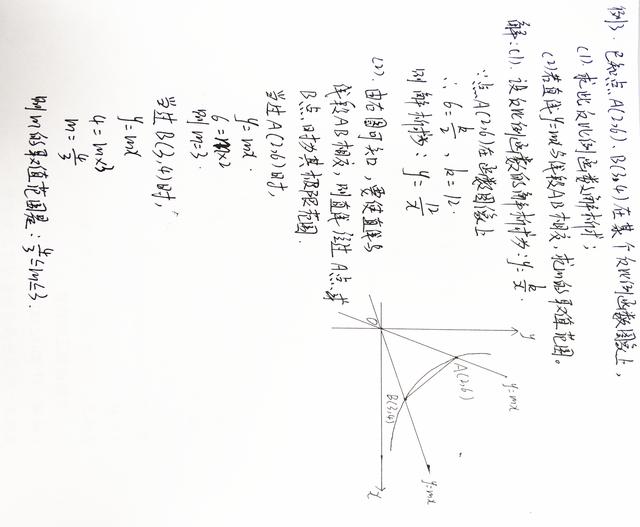 例3. 已知点A(2,6)、B(3,4)在某个反比例函数图象上,
(1). 求此反比例函数解析式;
(2)若直线y=mx与线段AB相交,求m的取值范围。
解:(1). 设反比例函数的解析式为:y=k/x.
∵点A(2,6)在函数图象上
∴ 6=k/2, k=12.
则解析式为: y=12/x
(2). 由右图可知,要使直线与
线段AB相交,则直线经过A点、或
B点时为其极限范围.
当过A(2,6)时,
y=mx.
6=m×2
则m=3.
当过B(3,4)时,
y=mx
4=m×3
m=4/3
则m的取值范围是: 4/3≤m≤3.
y
A(2,6)
y=mx
O
B(3,4)
y=mx
x